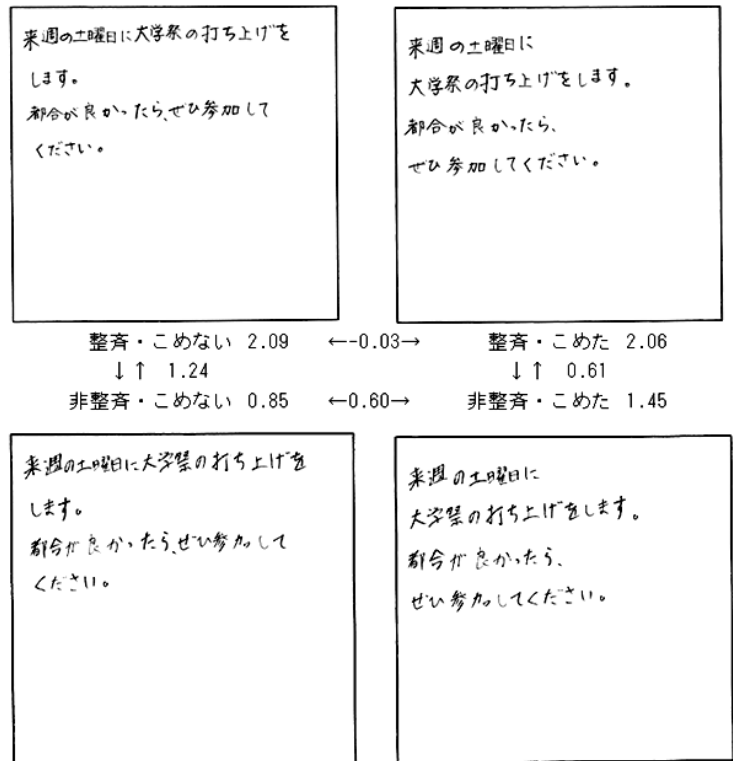 来週の土曜日に大学祭の打ち上げを
します。
都合が良かったら、ぜひ参加して
ください。
来週の土曜日に
大学祭の打ち上げをします。
都合が良かったら、
ぜひ参加してください。
整斉・こめない 2.09 ←-0.03→ 整斉・こめた 2.06
↓↑ 1.24 ↓↑ 0.61
非整斉・こめない 0.85 ←0.60→ 非整斉・こめた 1.45
来週の土曜日に大学祭の打ち上げを
します。
都合が良かったら、ぜひ参加して
ください。
来週の土曜日に
大学祭の打ち上げをします。
都合が良かったら、
ぜひ参加してください。